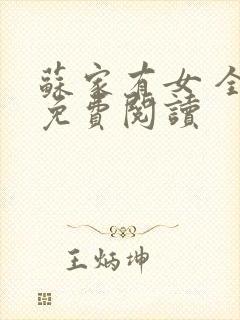 蘇家有女 全
免費閱讀
王炳坤